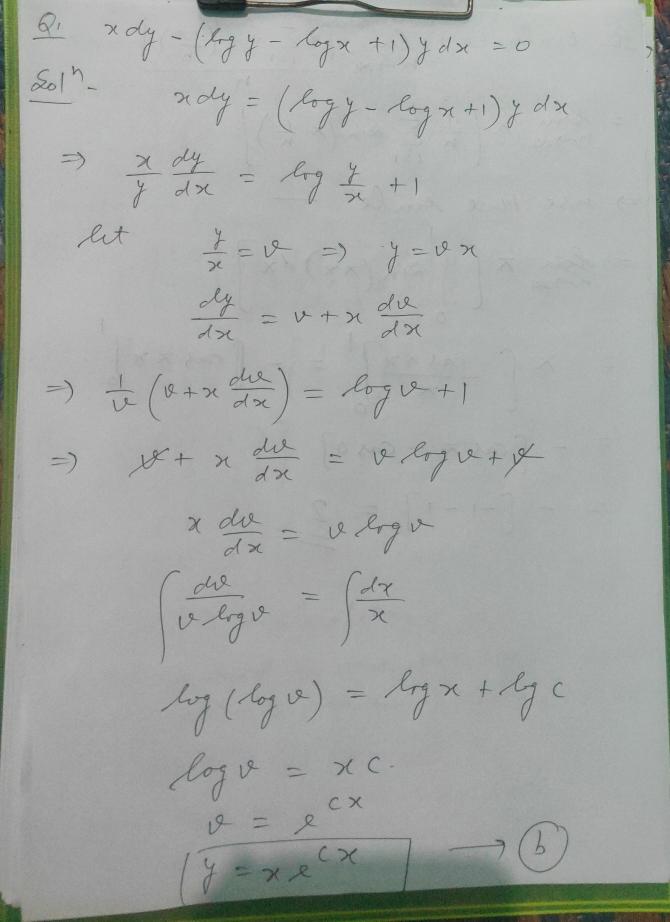 Q. x dy - (log y - log x + 1) y dx = 0
Solⁿ-
x dy = (log y - log x + 1) y dx
⇒ x/y dy/dx = log y/x + 1
let y/x = v ⇒ y = v x
dy/dx = v + x dv/dx
⇒ 1/v (v + x dv/dx) = log v + 1
⇒ v + x dv/dx = v log v + v
x dv/dx = v log v
∫ dv/(v log v) = ∫ dx/x
log (log v) = log x + log c
log v = x c.
v = e^{cx}
y = x e^{cx} → (b)